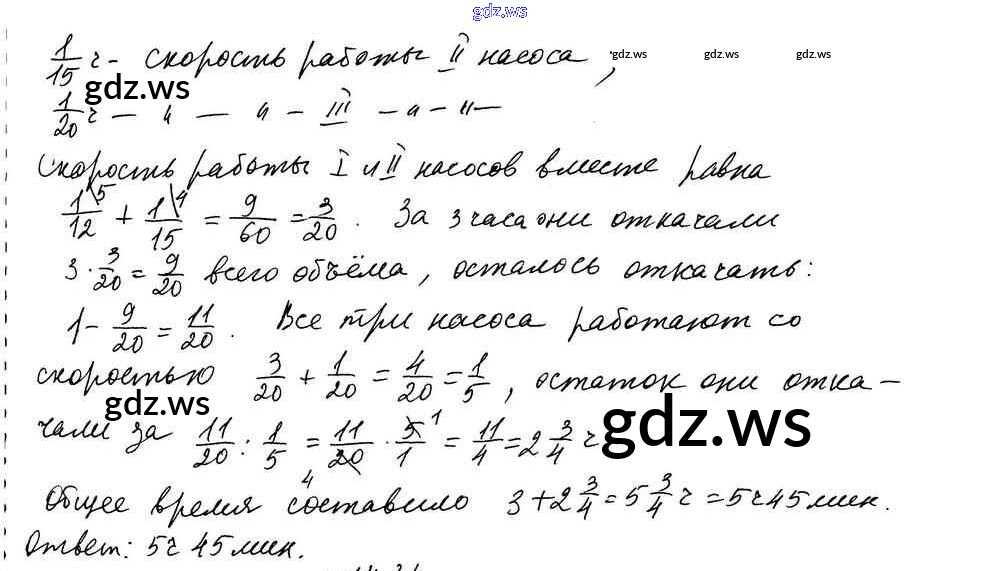 gdz.ws
1/15 ч - скорость работы II насоса, gdz.ws gdz.ws gdz.ws
gdz.ws
1/20 ч — " — " — III — " — " —
Скорость работы I и II насосов вместе равна
1\5/12 + 1\4/15 = 9/60 = 3/20. За 3 часа они откачали
3 · 3/20 = 9/20 всего объёма, осталось откачать:
1 - 9/20 = 11/20. Все три насоса работают со
скоростью 3/20 + 1/20 = 4/20 = 1/5, остаток они отка-
gdz.ws gdz.ws
чали за 11/20 : 1/5 = 11/20 4 · 5/1 1 = 11/4 = 2 3/4 ч
Общее время составило 3 + 2 3/4 = 5 3/4 ч = 5ч 45 мин.
Ответ: 5ч 45 мин.